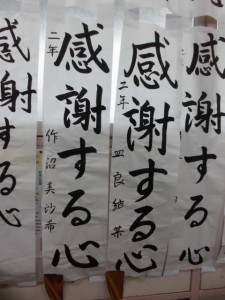 感謝する心
感謝する心
二年 結菜
感謝する心
二年 作沼美沙希
感謝する心